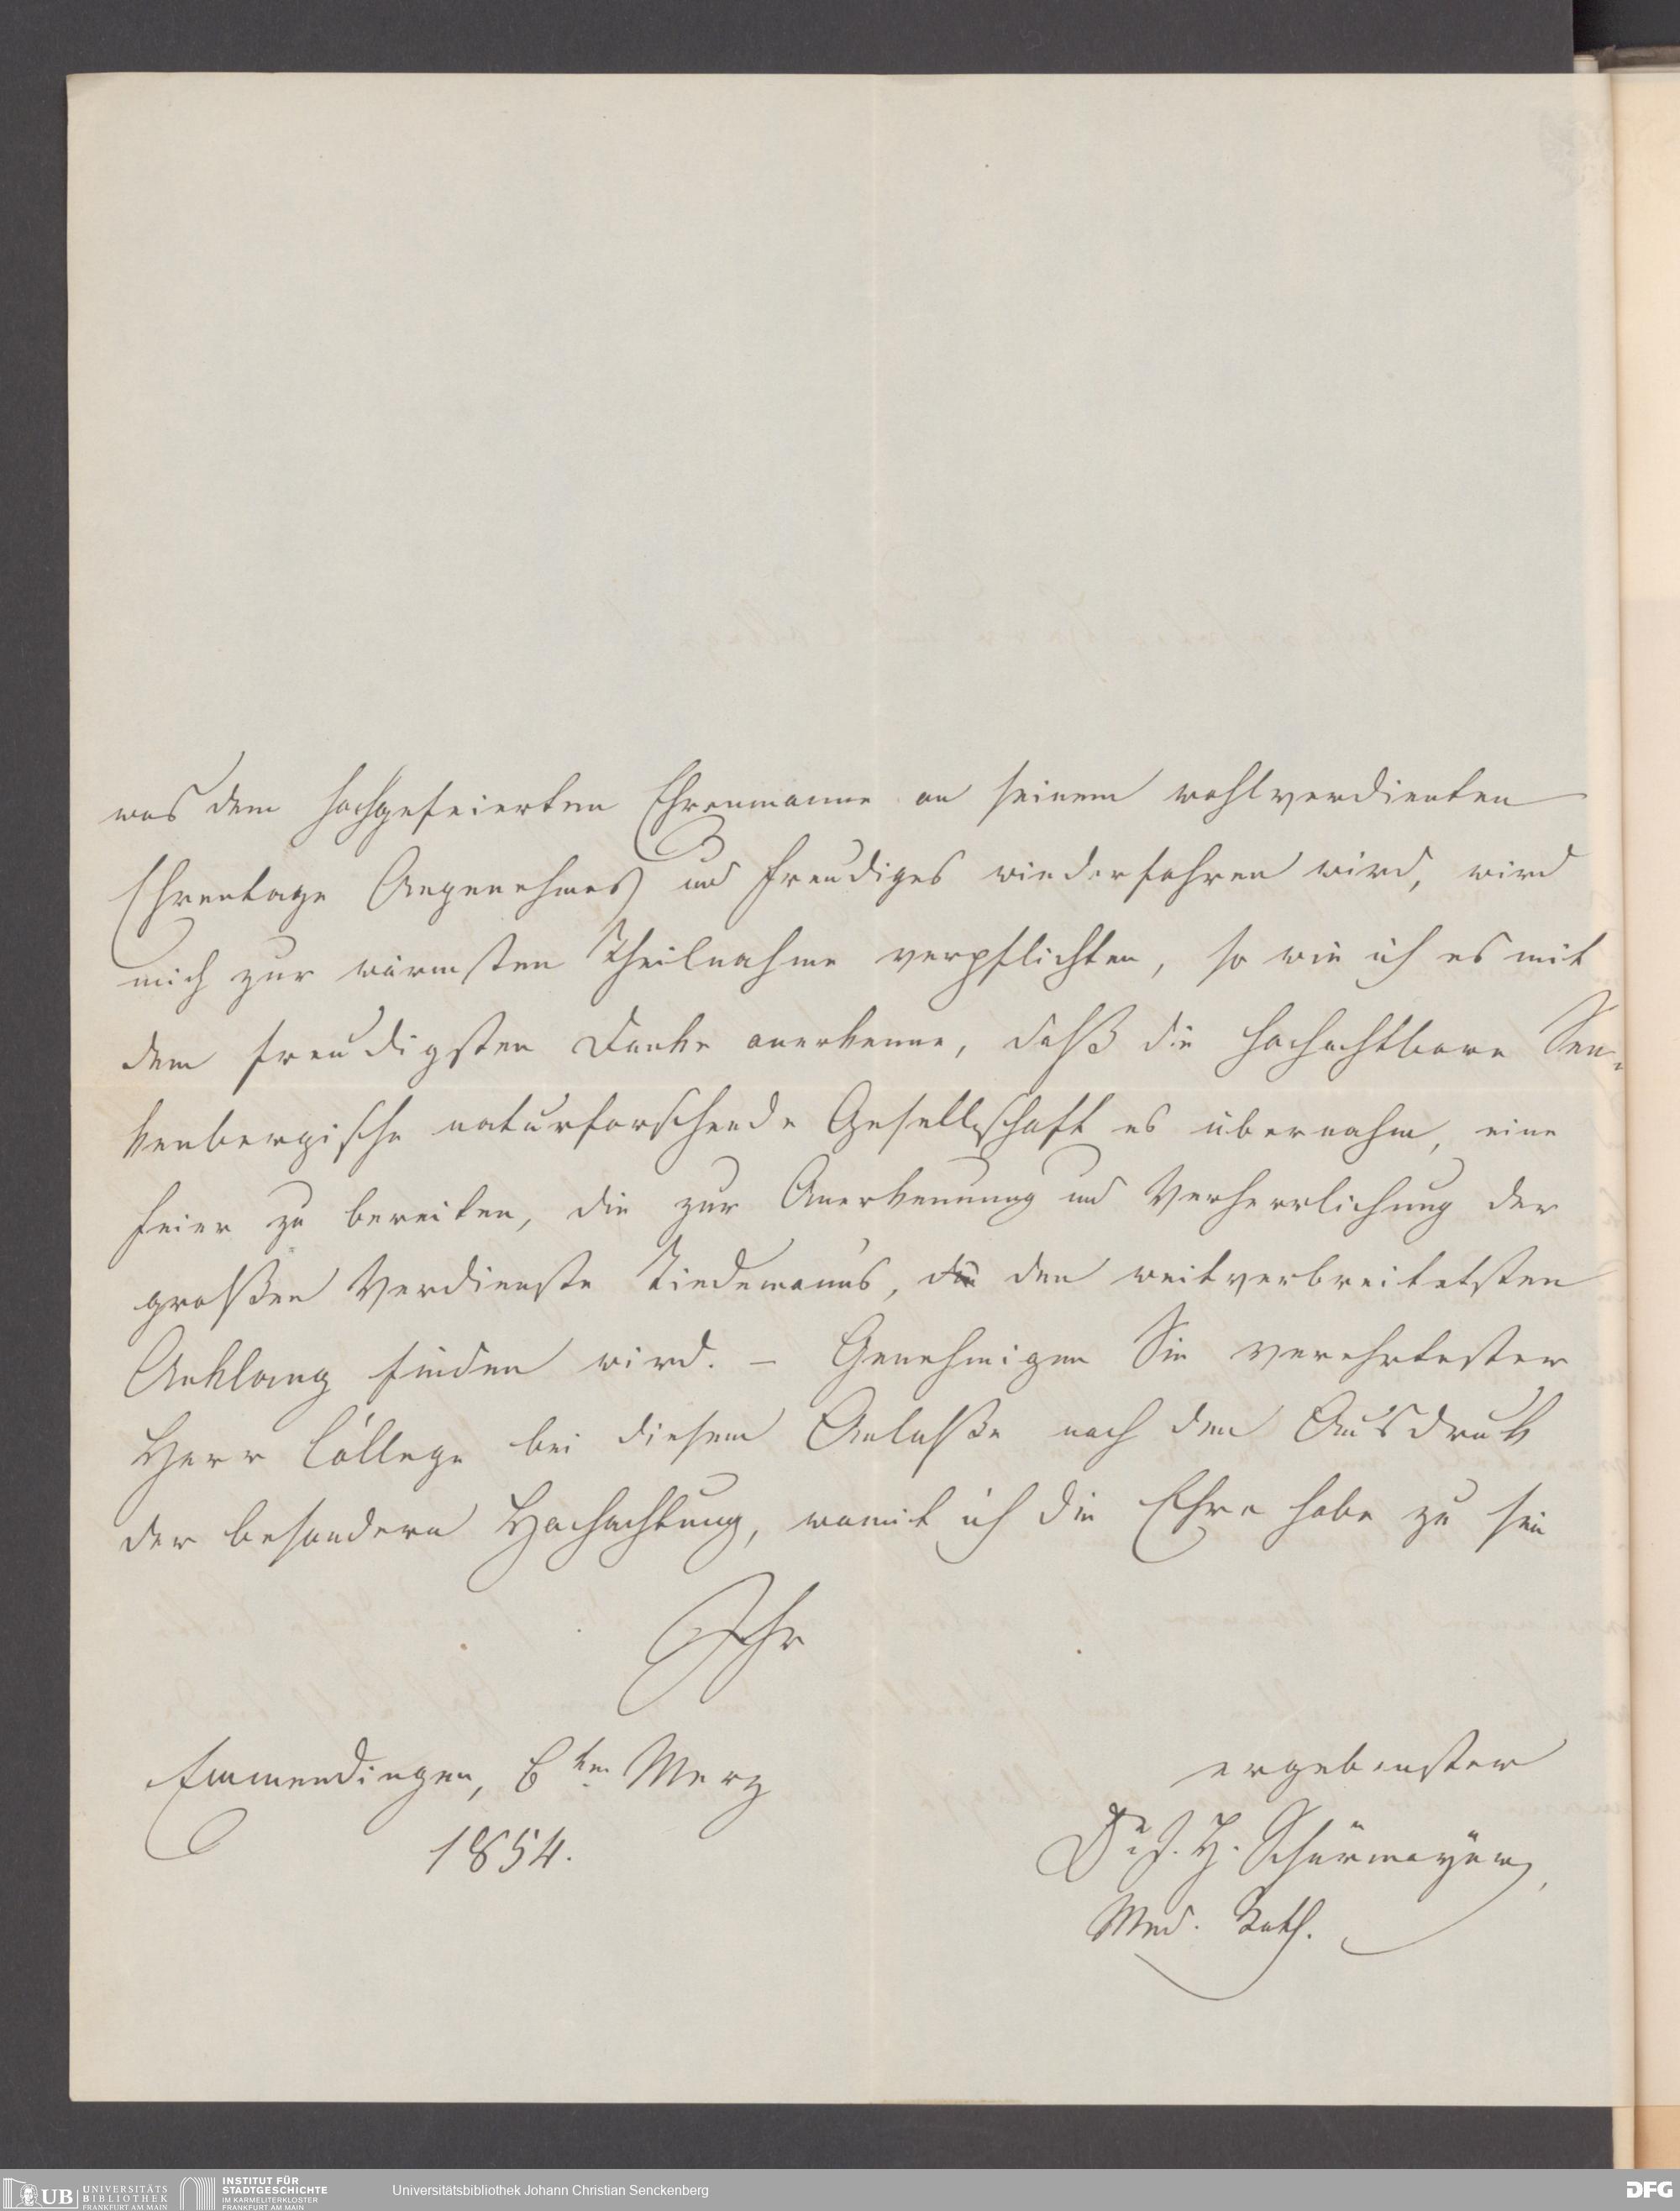 was dem hochgefeierten Ehrenmanne an seinem wohlverdienten
Ehrentage Angenehmes und freudiges wiederfahren wird, wird
mich zur wärmsten Theilnahme verpflichten, so wie ich es mit
dem freudigsten Danke anerkenne, daß die hochachtbare Sen-
kenbergische naturforschende Gesellschaft es übernahm, eine
Feier zu bereiten, die zur Anerkennung und Verherrlichung der
großen Verdienste Tiedemanns, den weitverbreitetsten
Anklang finden wird. – Genehmigen Sie verehrtester
Herr College bei diesem Anlaße noch den Ausdruk
der besondern Hochachtung, womit ich die Ehre habe zu sein
Ihr
Emmendingen, 6ten Merz
1854.
ergebenster
Dr J. H. Schürmayer,
Med. Rath.
UB UNIVERSITÄTS BIBLIOTHEK FRANKFURT AM MAIN
INSTITUT FÜR STADTGESCHICHTE IM KARMELITERKLOSTER FRANKFURT AM MAIN
Universitätsbibliothek Johann Christian Senckenberg
DFG